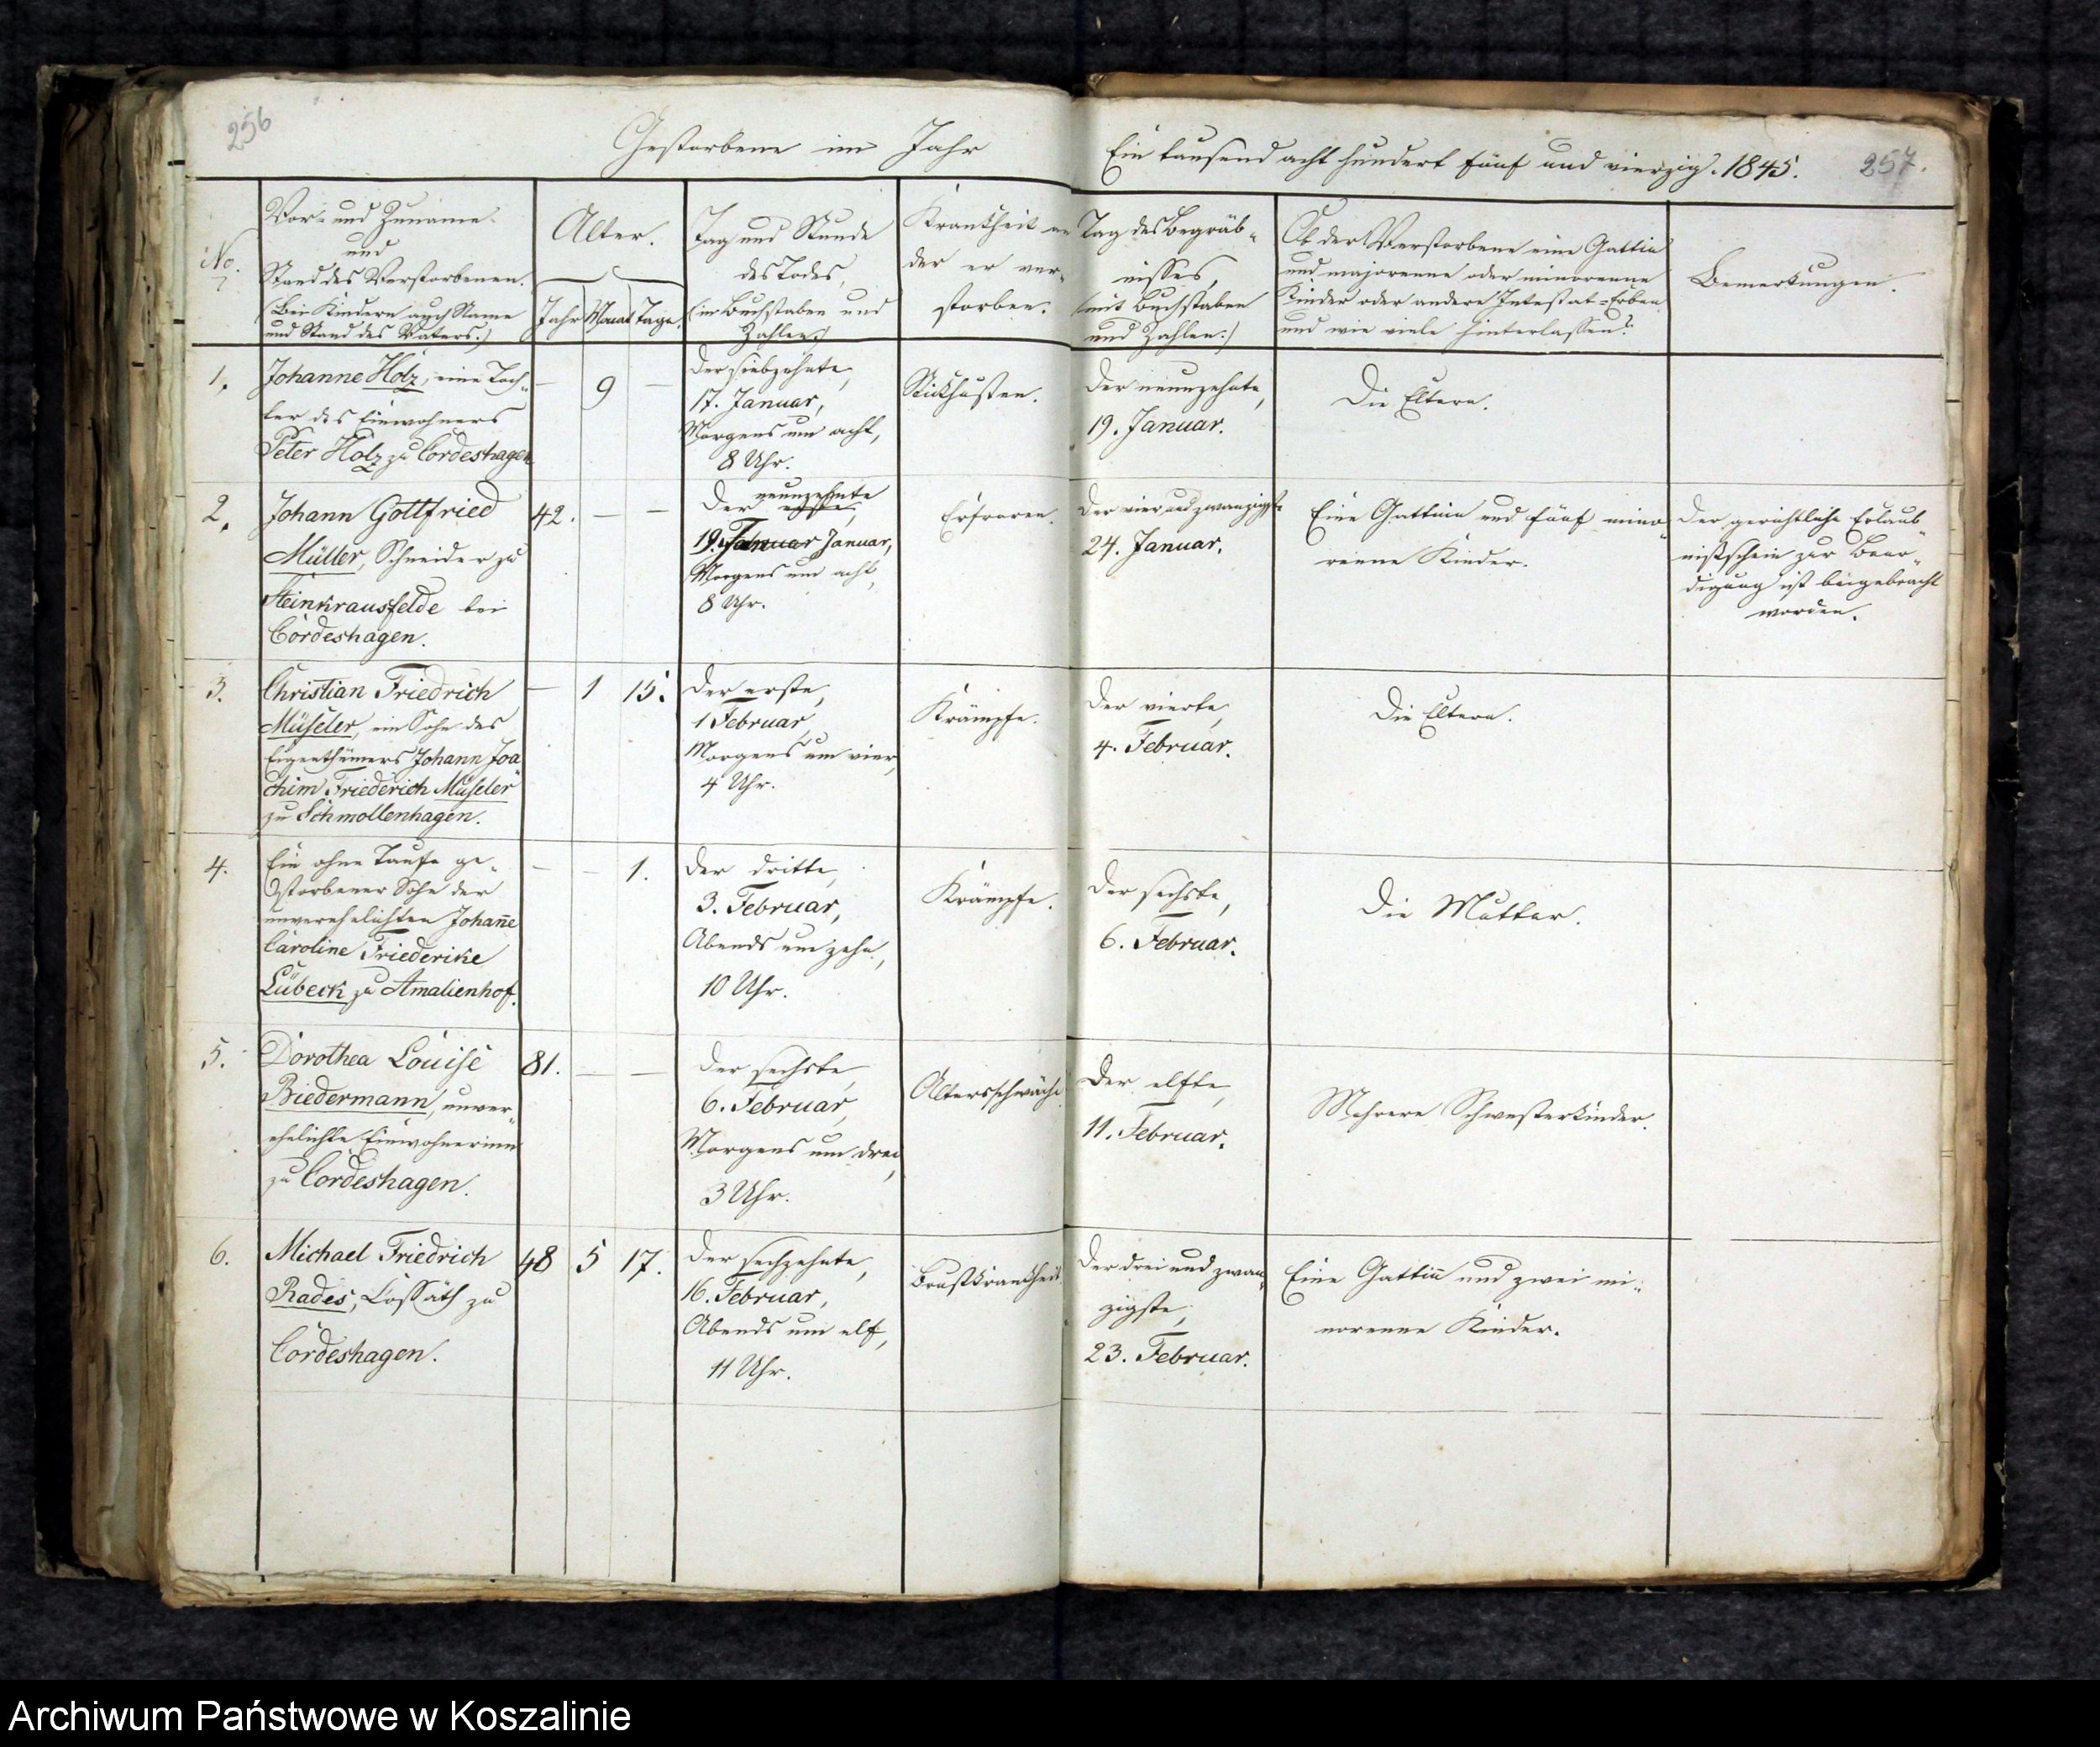 256
Gestorbene im Jahr
Ein tausend acht hundert fünf und vierzig. 1845.
257.
No.
Vor- und Zuname
und
Stand des Verstorbenen.
(Bei Kindern auch Name
und Stand des Vaters.)
Alter.
Jahr Monat Tage.
Tag und Stunde
des Todes,
(in Buchstaben und
Zahlen.)
Krankheit an
der er ver-
storben.
Tag des Begräb-
nisses,
(mit Buchstaben
und Zahlen.)
Ob der Verstorbene eine Gattin
und majorenne oder minorenne
Kinder oder andere Intestat-Erben
und wie viele hinterlassen?
Bemerkungen.
1.
Johanne Holz, eine Toch-
ter des Einwohners
Peter Holz zu Cordeshagen
— 9 —
Der siebzehnte,
17. Januar,
Morgens um acht,
8 Uhr.
Stickhusten.
Der neunzehnte,
19. Januar.
Die Eltern.
2.
Johann Gottfried
Müller, Schneider zu
Steinkrausfelde bei
Cordeshagen.
42. — —
neunzehnte
Der erste,
19. Januar,
Morgens um acht,
8 Uhr.
Erfroren.
Der vier und zwanzigste
24. Januar.
Eine Gattinn und fünf mino-
renne Kinder.
Der gerichtliche Erlaub-
nißschein zur Beer-
digung ist beigebracht
worden.
3.
Christian Friedrich
Müseler, ein Sohn des
Eigenthümers Johann Joa-
chim Friederich Müseler
zu Schmollenhagen.
— 1 15.
Der erste,
1 Februar,
Morgens um vier,
4 Uhr.
Krämpfe.
Der vierte,
4. Februar.
Die Eltern.
4.
Ein ohne Taufe ge-
storbener Sohn der
unverehelichten Johan̄e
Caroline Friederike
Lübeck zu Amalienhof.
— — 1.
Der dritte,
3. Februar,
Abends um zehn,
10 Uhr.
Krämpfe.
Der sechste,
6. Februar.
Die Mutter.
5.
Dorothea Louise
Biedermann, unver-
ehelichte Einwohnerinn
zu Cordeshagen.
81. — —
Der sechste,
6. Februar,
Morgens um drei,
3 Uhr.
Altersschwäche.
Der elfte,
11. Februar.
Mehrere Schwesterkinder.
6.
Michael Friedrich
Rades, Coßäth zu
Cordeshagen.
48 5 17.
Der sechzehnte,
16. Februar,
Abends um elf,
11 Uhr.
Brustkrankheit.
Der drei und zwan-
zigste,
23. Februar.
Eine Gattin̄ und zwei mi-
norenne Kinder.
Archiwum Państwowe w Koszalinie